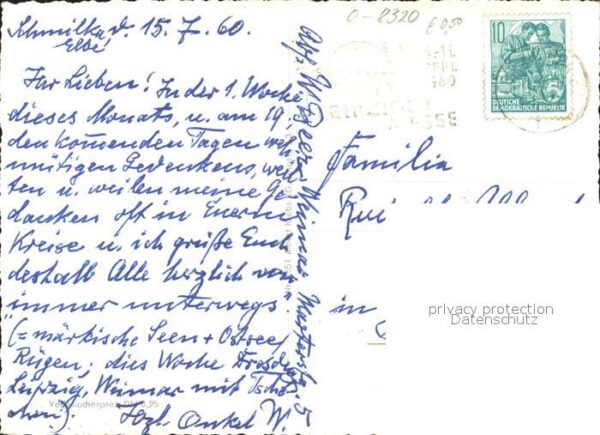 Schmilka d. 15.7.60.
Elbe
Ihr Lieben! In der 1. Woche
dieses Monats, u. am 19.,
den kommenden Tagen weh
mütigen Gedenkens, weil
ten u. weilen meine Ge
danken oft in Eurem
Kreise u. ich grüße Euch
deshalb Alle herzlich von
"immer unterwegs."
(= märkische Seen + Ostsee/
Rügen, dies Woche Dresden,
Leipzig, Weimar mit
Hzl. Onkel W.
Verbraucherpreis DM 0,25
Abs. W. Weimar
5
0-8320
€ 0,50
10
DEUTSCHE
DEMOKRATISCHE REPUBLIK
LEIPZIGER
MESSE
Familie
in
privacy protection
Datenschutz